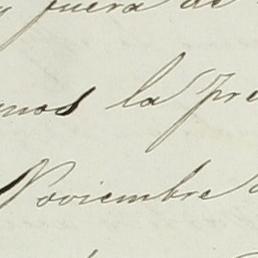 y fuera de
mos la pre
Noviembre